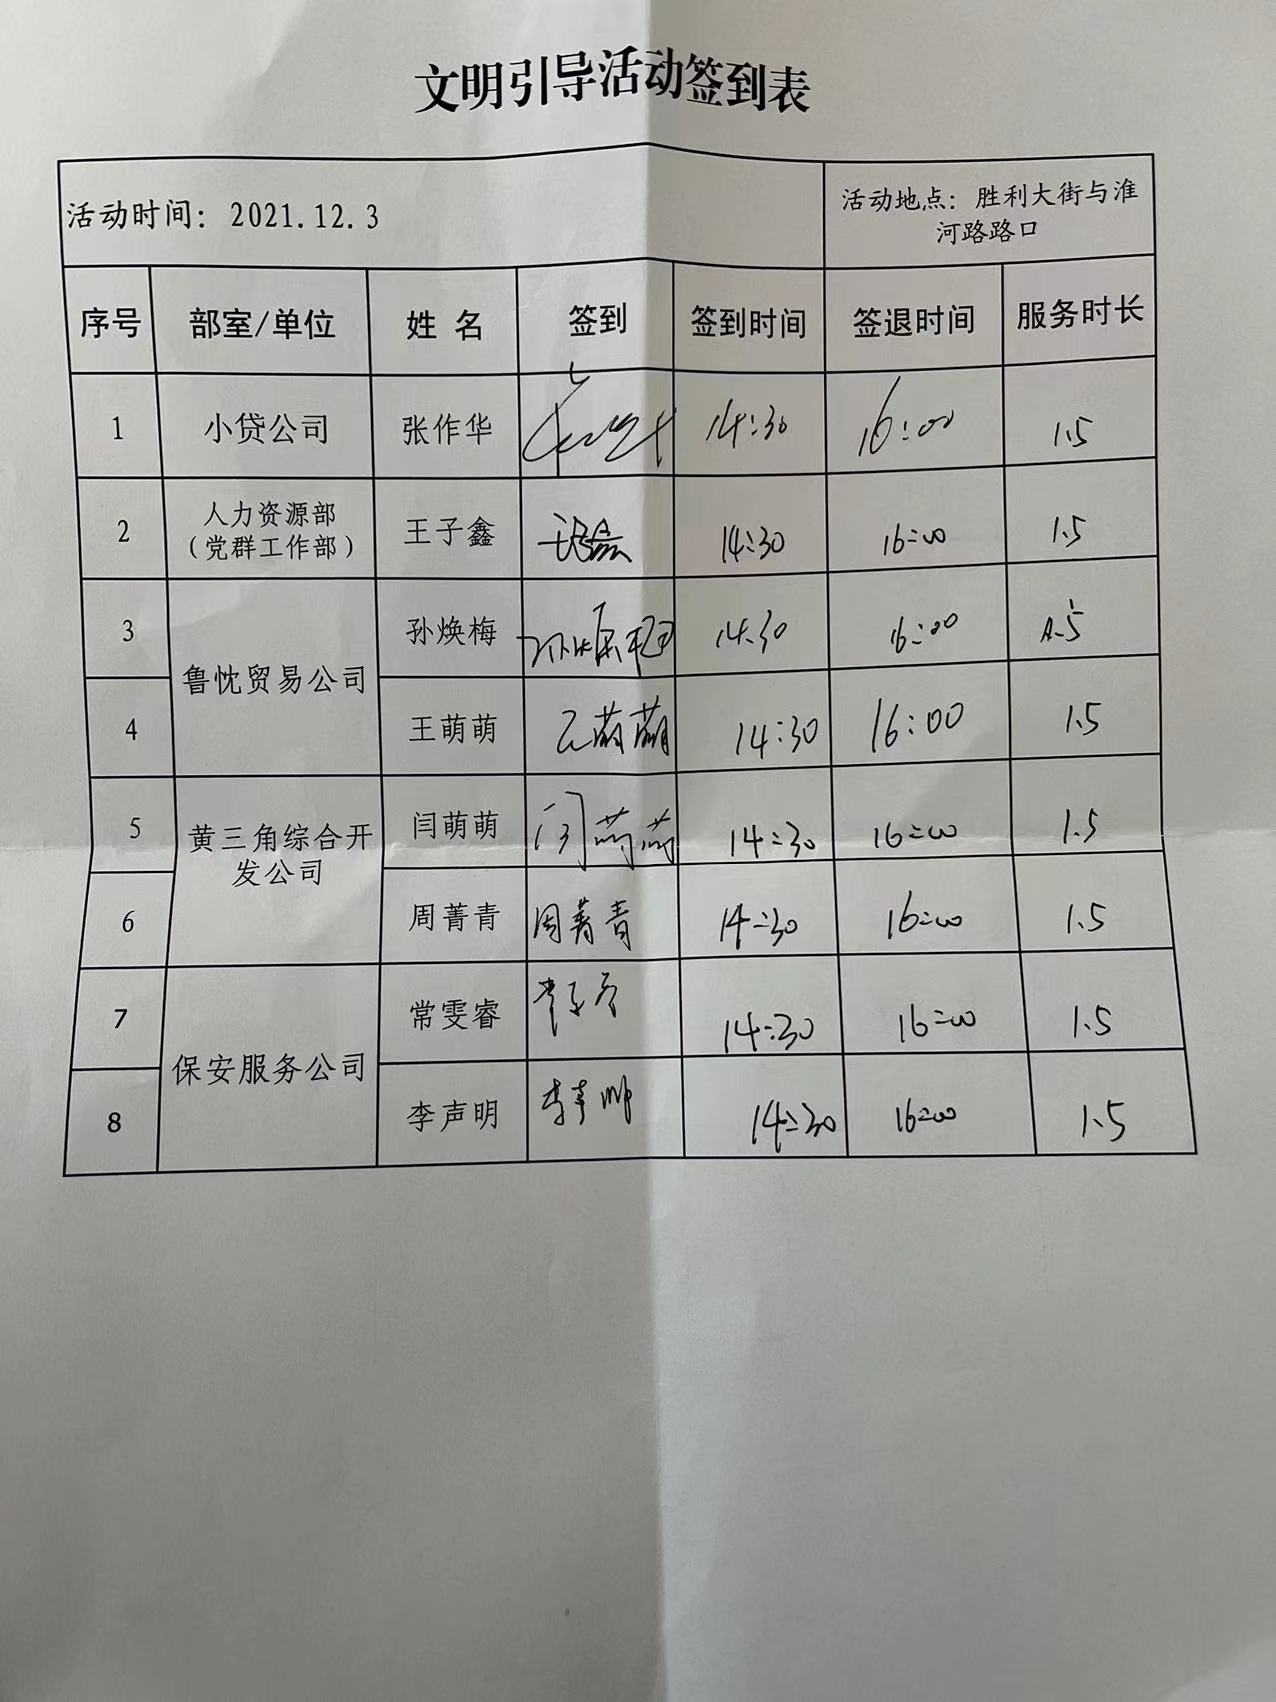 文明引导活动签到表
活动时间：2021.12.3
活动地点：胜利大街与淮
河路路口
序号 部室/单位 姓 名 签到 签到时间 签退时间 服务时长
1 小贷公司 张作华 14:30 16:00 1.5
2 人力资源部
（党群工作部） 王子鑫 王子鑫 14:30 16:00 1.5
3 鲁忱贸易公司 孙焕梅 孙焕梅 14:30 16:00 1.5
4 王萌萌 王萌萌 14:30 16:00 1.5
5 黄三角综合开
发公司 闫萌萌 闫萌萌 14:30 16:00 1.5
6 周菁青 周菁青 14:30 16:00 1.5
7 保安服务公司 常雯睿 14:30 16:00 1.5
8 李声明 李声明 14:30 16:00 1.5